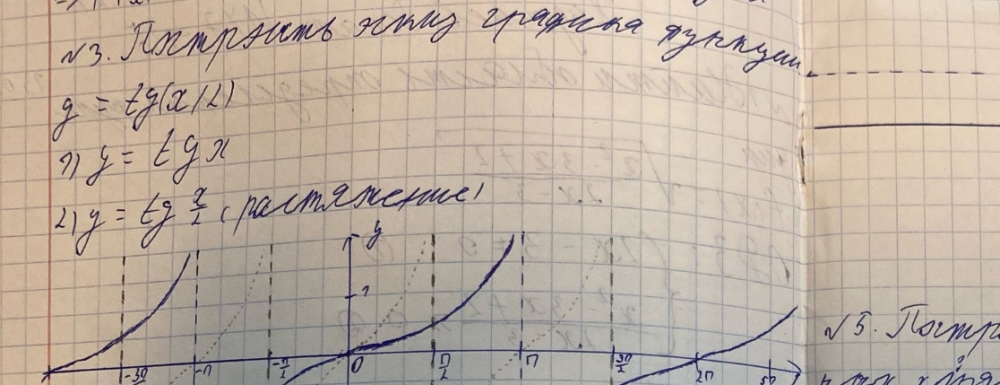 №3. Построить эскиз графика функции.
y = tg(x/2)
1) y = tg x
2) y = tg x/2 (растяжение)
y
1
-3π/2 -π -π/2 0 π/2 π 3π/2 2π
№5. Постр